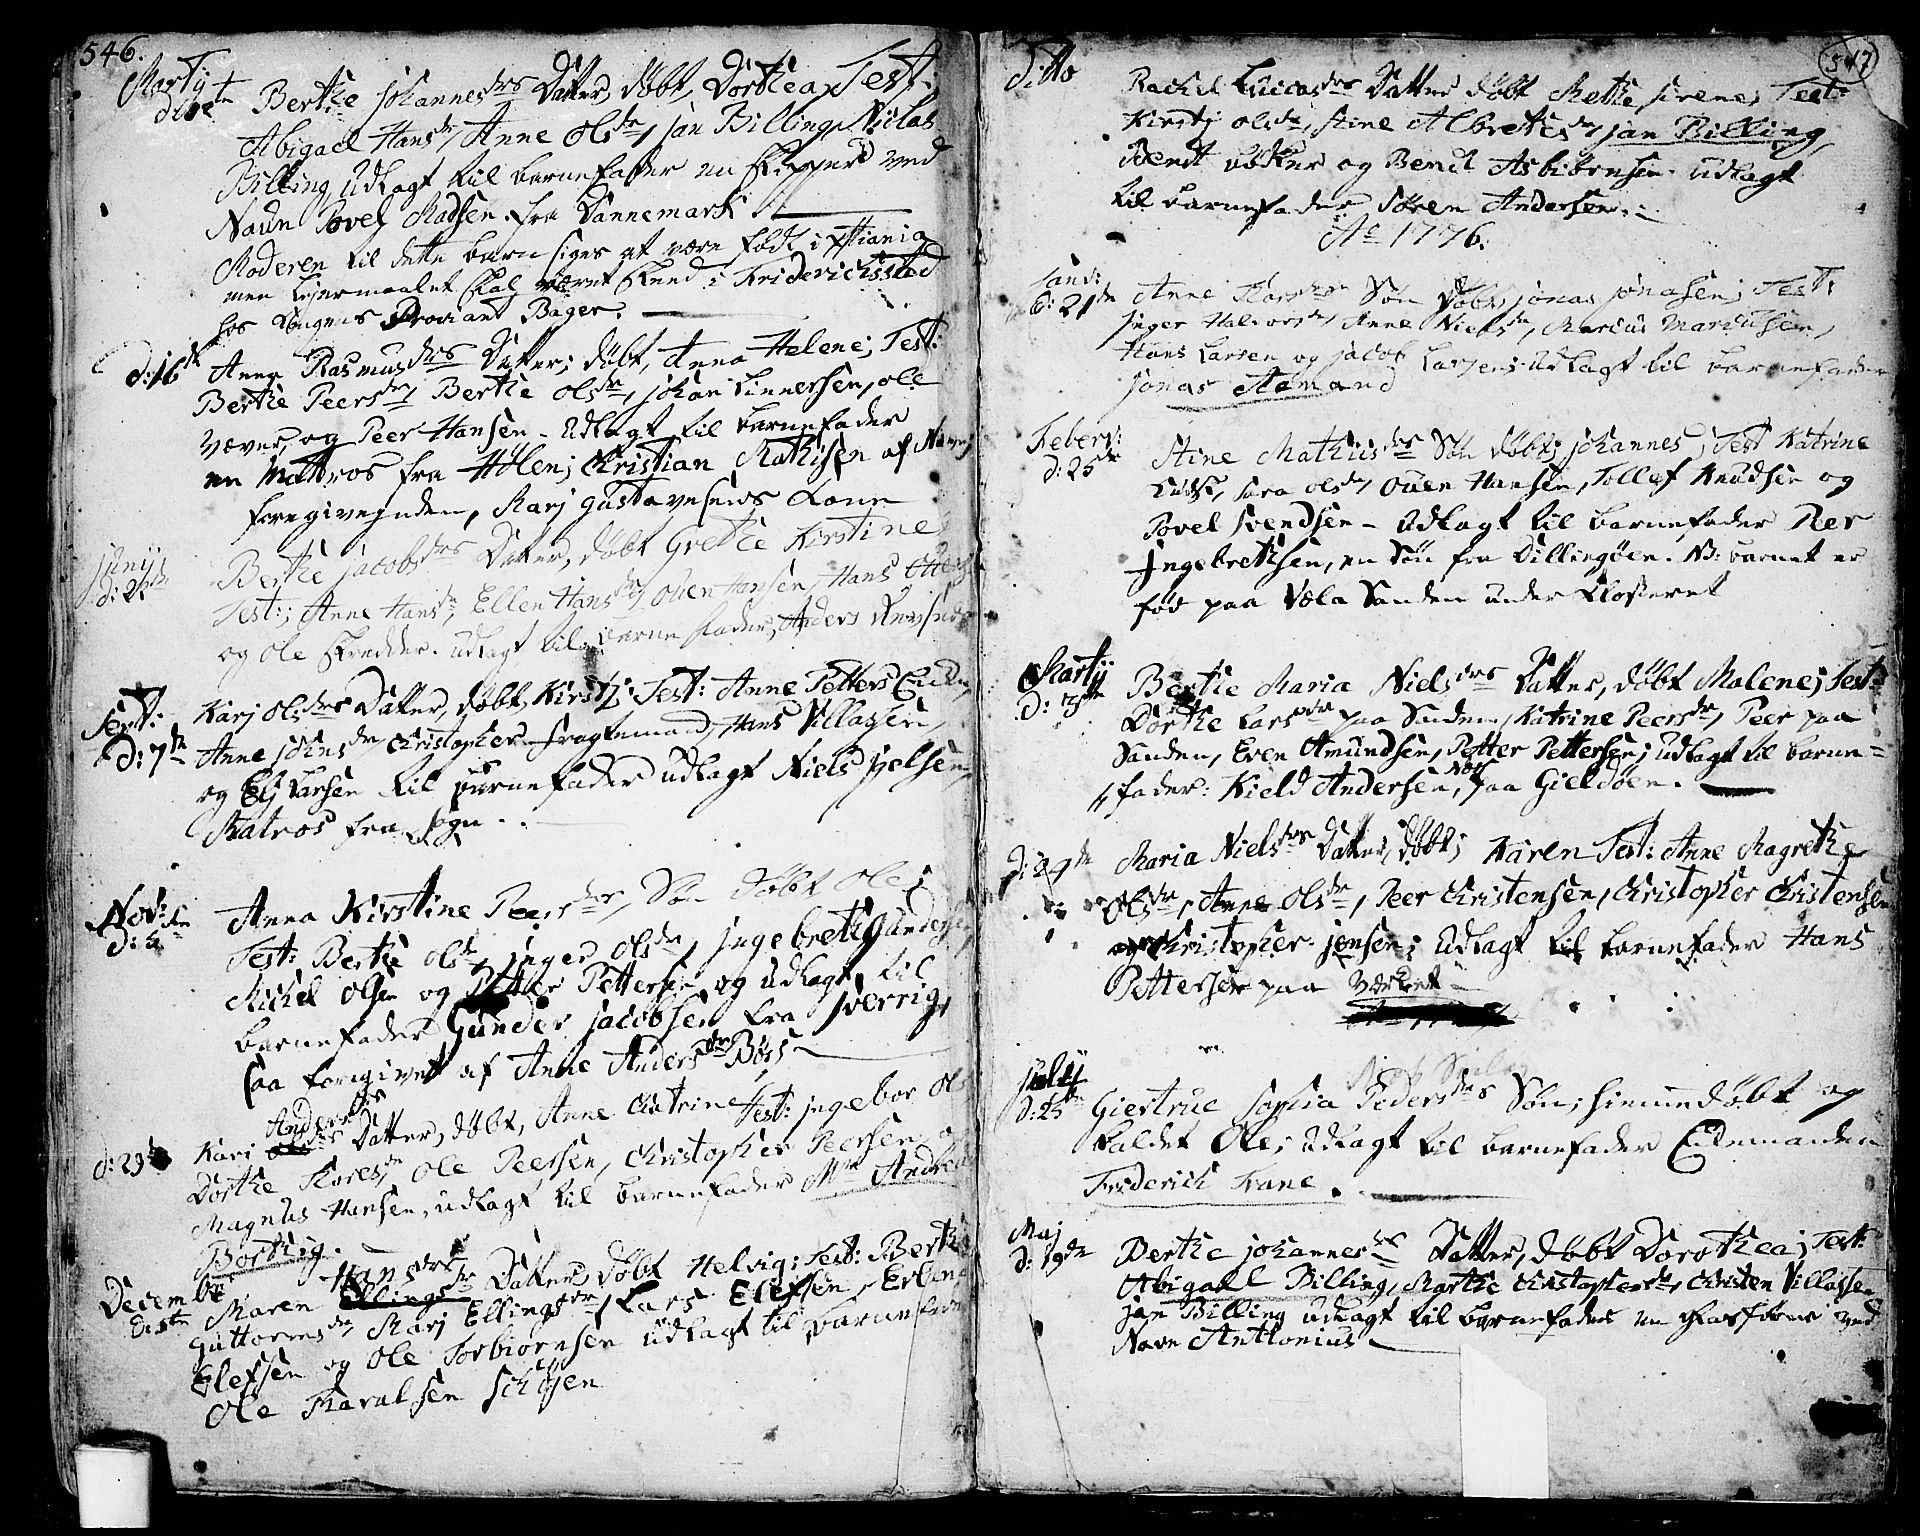 546.
Martij Berthe Johannesdrs Datter, døbt, Dorthea, Test:
Abigael Hansdr, Anne Olsdr, Jan Billing, Niclas
Billing, Udlagt til barnefader en Skipper ved
Navn Povel Madsen fra Dannemark.
Moderen til dette barn siges at være født i Xstiania
men Leiermaalet skal været skeed i Friderichsstad
hos Kongens Proviant Bager.
d: 16de Anna Rasmusdrs Datter, døbt, Anna Helene; Test:
Berthe Peersdr, Berthe Olsdr, Johan Linnersen, Ole
Væver, og Peer Hansen - Udlagt til barnefader
en Mattros fra Hølen; Christjan Mathisen af Navn
foregivesnden, Marj Gustavesens Kone
Junij Berthe Jacobsdrs Datter, døbt Grethe Kirstine
Test:, Anne Hansdr, Ellen Hansdr, Oven Hansen, Hans
og Ole Skredder. udlagt til barnefader, Anders
Sept: Karj Olsdrs Datter, døbt, Kirstj; Test: Anne Petters
d: 7de Anne Johnsdr Christopher Fragtemand, Hans Villassen,
og Elj Larsen til barnefader udlagt Niels Jelsen,
Matros fra Sogn.
Nov: Anna Kirstine Peersdrs, Søn døbt Ole;
Test: Berthe Olsdr, Inger Olsdr, Ingebreth Gundersen,
Michel Olsen og Petter Pettersen og udlagt til
barnefader Gunder Jacobsen fra Sverrig,
saa foregivet af Anne Andersdr Bøss
Andersdrs
d: 29de Kari Datter, døbt, Anne Catrine Test: Ingebor Ols
Dorthe Toresdr, Ole Peersen, Christopher Peersen
Magnus Hansen, udlagt til barnefader Mr Andreas
Borthig.
Hansdrs
Decembr Maren Ellingsdr Datter, døbt Helvig; Test: Berthe
d: 5te Guttormsdr, Marj Ellingsdr, Lars Elefsen, Erling
Elefsen og Ole Torbiørnsen udlagt til barnefader
Ole Haralsen Schøjen
547
Ditto Rachel Lucasdrs Datter døbt Methe Sirene; Test:
Kirstj Olsdr, Stine Albrethsdr, Jan Billing,
Bendt og Bendt Asbiörnsen. udlagt
til barnefader Sören Andersen.
Ao 1776.
Janu:
d: 21de Anne Søn døbt, Jonas Jonasen; Test:
Inger Halvorsdr, Anne Nielsdr, Marcus Marcussen,
Hans Larsen og Jacob Larsen; udlagt til barnefader
Jonas Aamand
Febru: Stine Mathiisdrs Søn døbt, Johannes; Test Katrine
d: 25de Sara Olsdr, Oven Hansen, Tollef Knudsen og
Povel Svendsen - Udlagt til barnefader Per
Ingebrethsen, en Søn fra Dillingøen. NB: barnet er
fød paa Væla Sanden under Klosteret
Martij Berthe Maria Nielsdrs Datter, døbt Malene; Test:
d: 3de Dorthe Larsdr paa Sanden, Katrine Peersdr, Peer paa
Sanden, Even Amundsen, Petter Pettersen; udlagt til barne-
fader: Kield Andersen, paa Gieldøen.
d: 24de Maria Nielsdrs Datter, døbt, Karen Test: Anne Magrethe
Olsdr, Anne Olsdr, Peer Christensen, Christopher Christensen
og Christopher Jensen; udlagt til barnefader Hans
Pettersen paa Værket
July
d: 25de Giertrue Sophia Pedersdrs Søn, hiemmedøbt og
kaldet Ole; udlagt til barnefader Enkemanden
Friderich Krane.
Maj
d: 19de Berthe Johannesdrs Datter, døbt Dorothea; Test:
Abigaell Billing, Marthe Christophersdr, Christen Villassen
Jan Billing udlagt til barnefader en ved
Navn Anthonius